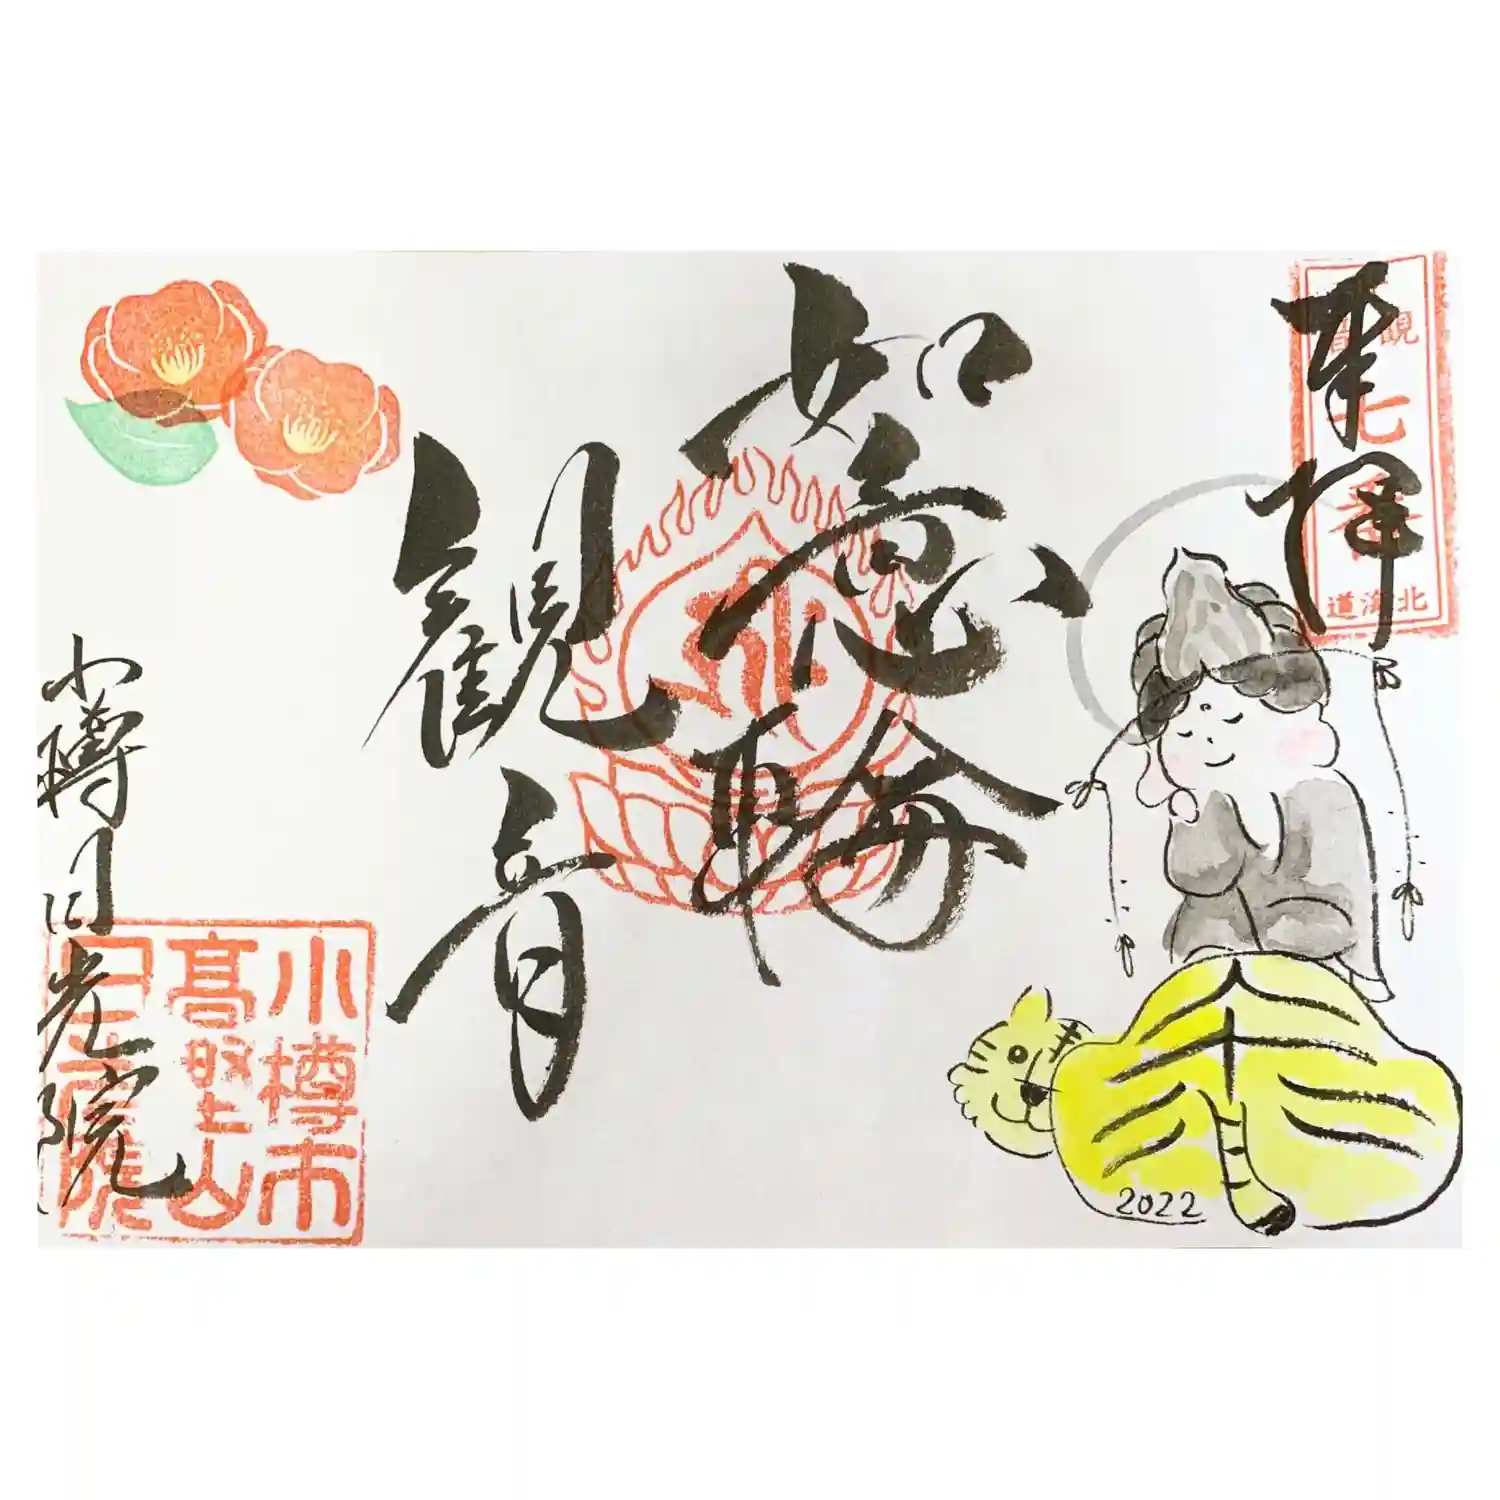 奉拝
北海道
観音
七番
如意輪
観音
小樽日光院
小樽市
高野山
日光院
2022